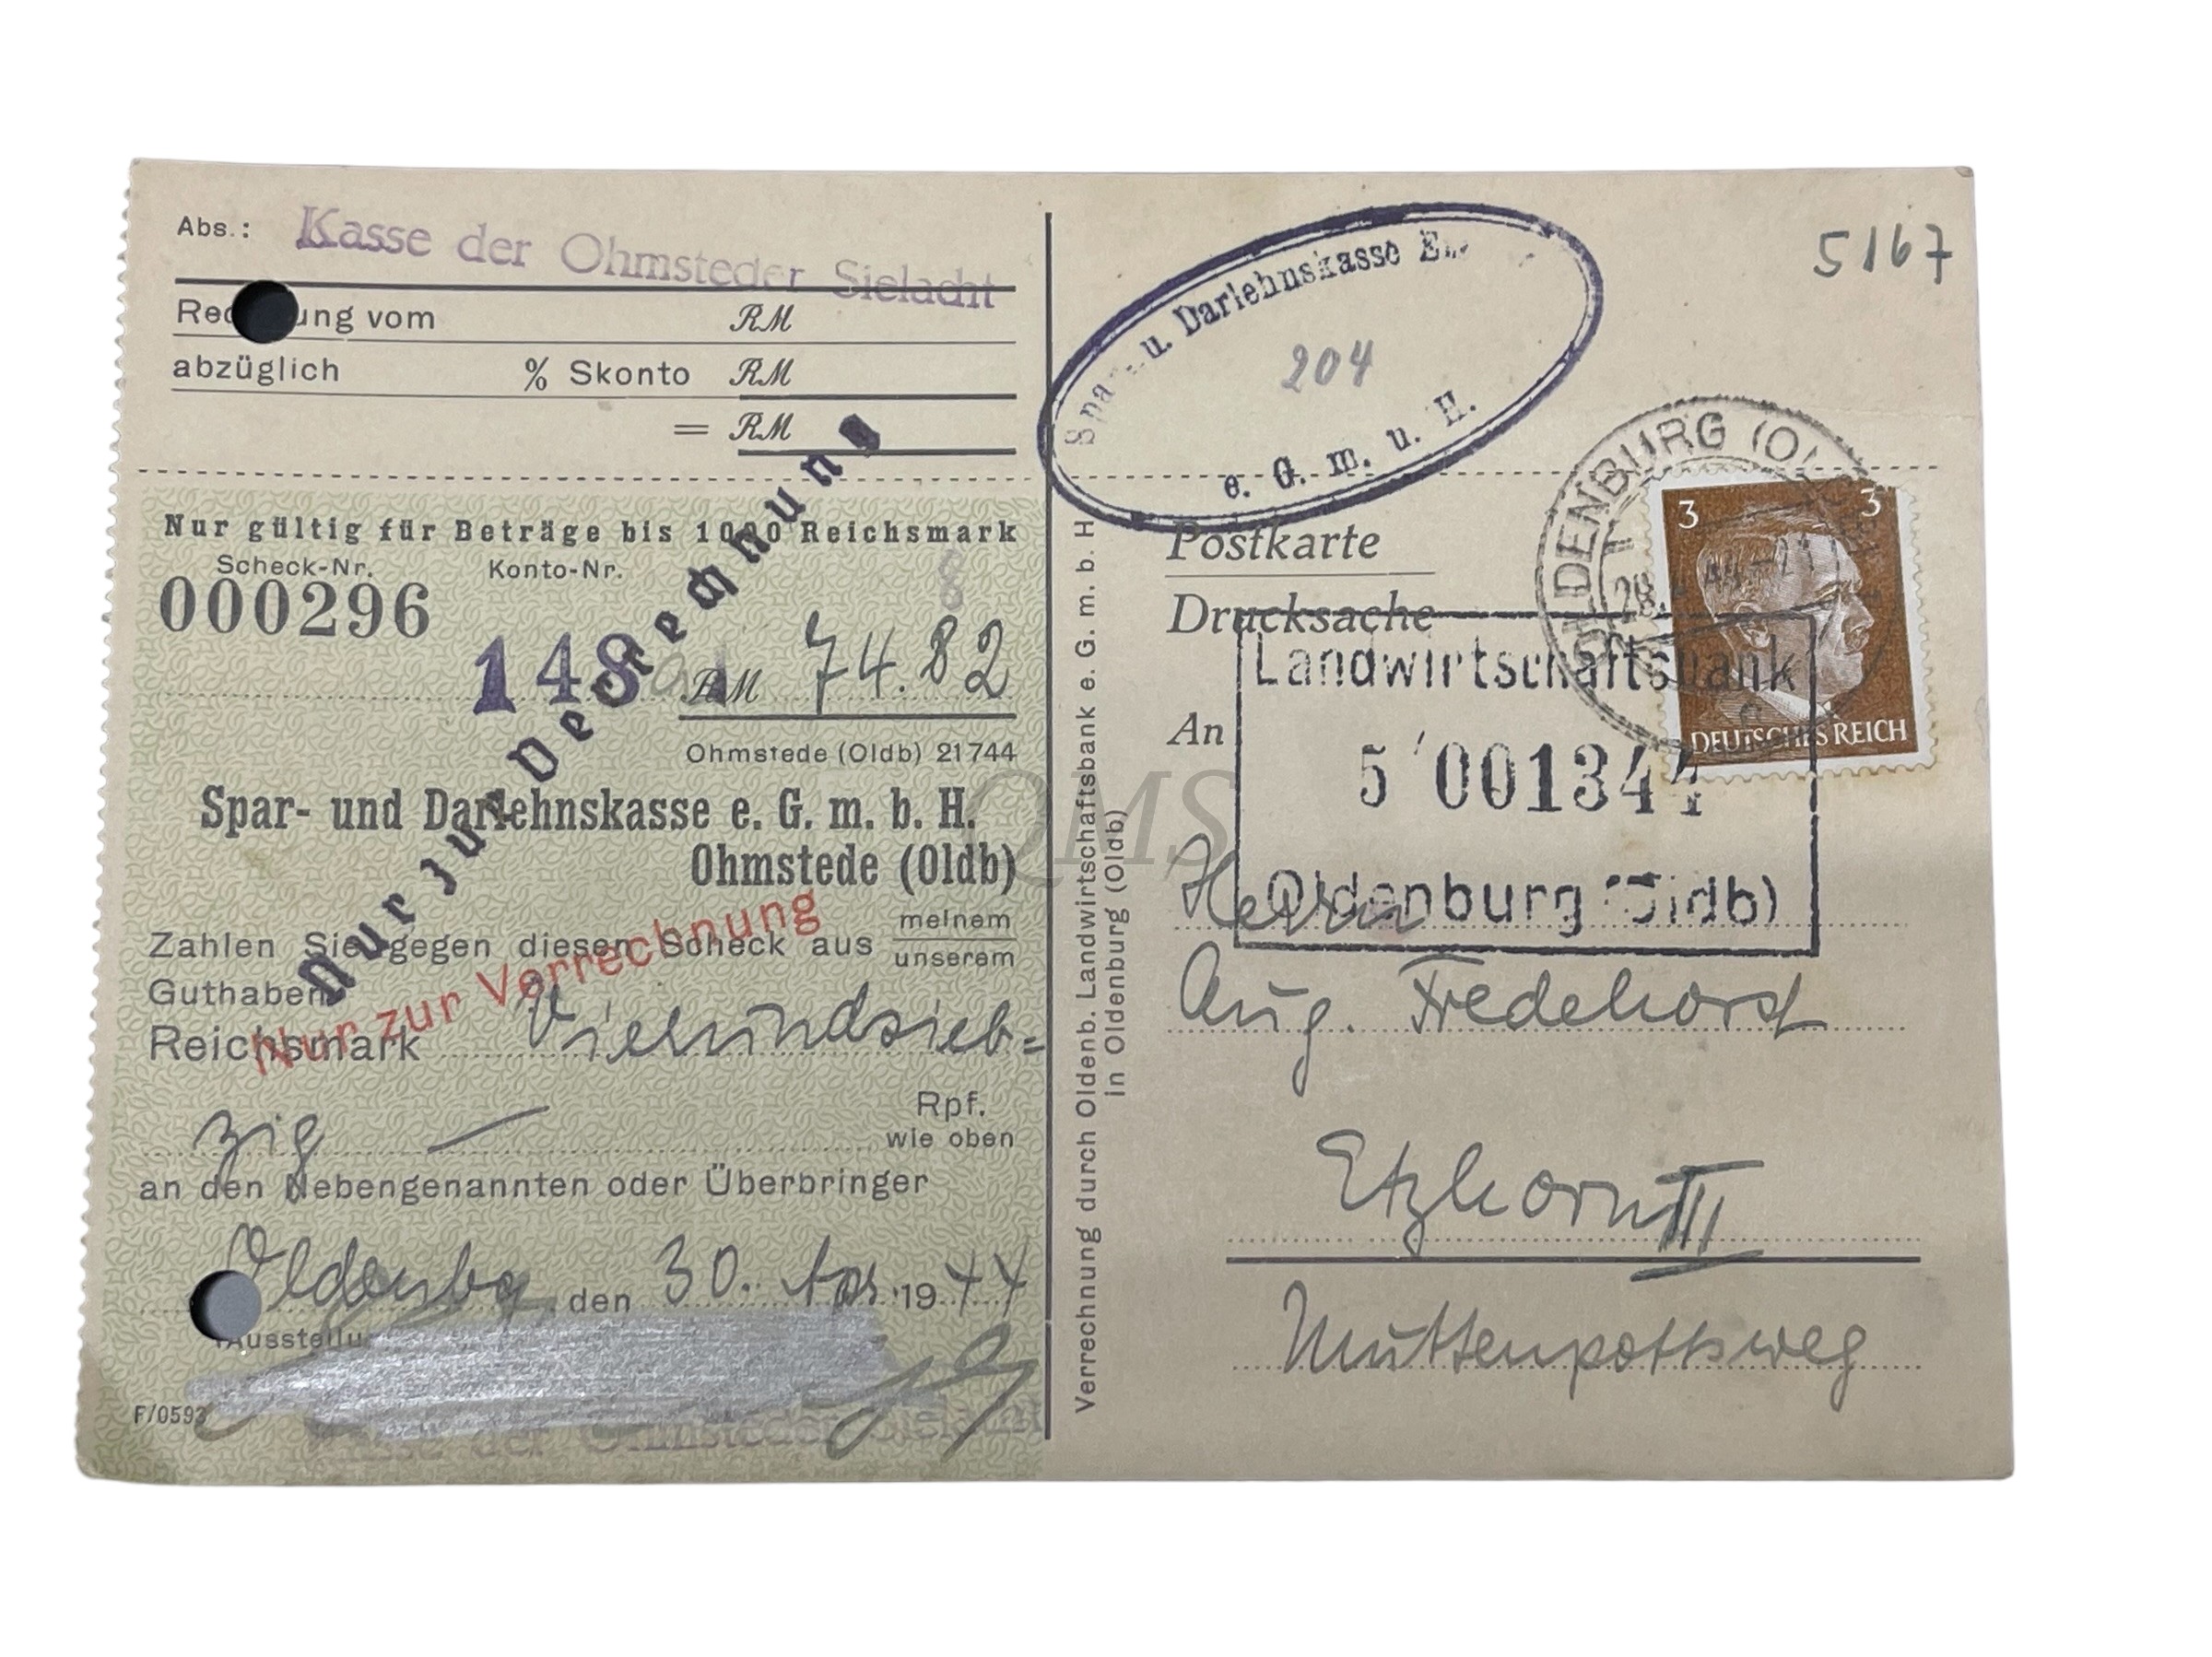 Abs.: Kasse der Ohmsteder Sielacht
Rechnung vom RM
abzüglich % Skonto RM
= RM
Nur gültig für Beträge bis 1000 Reichsmark
Scheck-Nr. Konto-Nr.
000296
148
RM 74.82
Ohmstede (Oldb) 21744
Spar- und Darlehnskasse e. G. m. b. H.
Ohmstede (Oldb)
Nur zur Verrechnung
Nur zur Verrechnung
Zahlen Sie gegen diesen Scheck aus meinem
unserem
Guthaben
Reichsmark Vierundsieb=
zig — Rpf.
wie oben
an den Nebengenannten oder Überbringer
Oldenbg, den 30. 1944
F/0593
Kasse der Ohmsteder Sielacht
Verrechnung durch Oldenb. Landwirtschaftsbank e. G. m. b. H
in Oldenburg (Oldb)
Spar- u. Darlehnskasse
204
e. G. m. u. H.
5167
OLDENBURG (OL
3 3
DEUTSCHES REICH
Postkarte
Drucksache
An
Landwirtschaftsbank
5 001344
Oldenburg (Oldb)
Herrn
Aug. Fredehorst
Etzhorn III
Muttenpottsweg
QMS